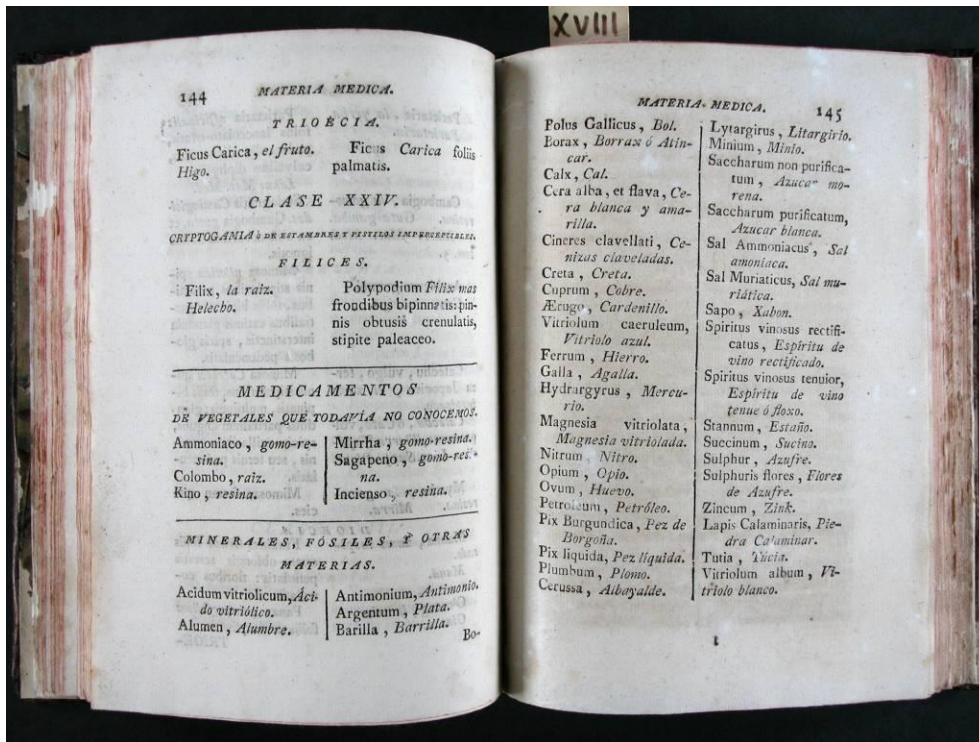 XVIII
144 MATERIA MEDICA.
TRIOECIA.
Ficus Carica, el fruto.
Higo.
Ficus Carica foliis
palmatis.
CLASE XXIV.
CRYPTOGAMIA ó DE ESTAMBRES Y PISTILOS IMPERCEPTIBLES.
FILICES.
Filix, la raiz.
Helecho.
Polypodium Filix mas
frondibus bipinnatis: pin-
nis obtusis crenulatis,
stipite paleaceo.
MEDICAMENTOS
DE VEGETALES QUE TODAVÍA NO CONOCEMOS.
Ammoniaco, gomo-re-
sina.
Colombo, raiz.
Kino, resina.
Mirrha, gomo-resina.
Sagapeno, gomo-resi-
na.
Incienso, resina.
MINERALES, FÓSILES, Y OTRAS
MATERIAS.
Acidum vitriolicum, Áci-
do vitriólico.
Alumen, Alumbre.
Antimonium, Antimonio.
Argentum, Plata.
Barilla, Barrilla.
Bo-
MATERIA MEDICA. 145
Bolus Gallicus, Bol.
Borax, Borrax ó Atin-
car.
Calx, Cal.
Cera alba, et flava, Ce-
ra blanca y ama-
rilla.
Cineres clavellati, Ce-
nizas claveladas.
Creta, Creta.
Cuprum, Cobre.
Ærugo, Cardenillo.
Vitriolum caeruleum,
Vitriolo azul.
Ferrum, Hierro.
Galla, Agalla.
Hydrargyrus, Mercu-
rio.
Magnesia vitriolata,
Magnesia vitriolada.
Nitrum, Nitro.
Opium, Opio.
Ovum, Huevo.
Petroleum, Petróleo.
Pix Burgundica, Pez de
Borgoña.
Pix liquida, Pez líquida.
Plumbum, Plomo.
Cerussa, Albayalde.
Lytargirus, Litargirio.
Minium, Minio.
Saccharum non purifica-
tum, Azucar mo-
rena.
Saccharum purificatum,
Azucar blanca.
Sal Ammoniacus, Sal
amoniaca.
Sal Muriaticus, Sal mu-
riática.
Sapo, Xabon.
Spiritus vinosus rectifi-
catus, Espíritu de
vino rectificado.
Spiritus vinosus tenuior,
Espíritu de vino
tenue ó floxo.
Stannum, Estaño.
Succinum, Sucino.
Sulphur, Azufre.
Sulphuris flores, Flores
de Azufre.
Zincum, Zink.
Lapis Calaminaris, Pie-
dra Calaminar.
Tutia, Túcia.
Vitriolum album, Vi-
triolo blanco.